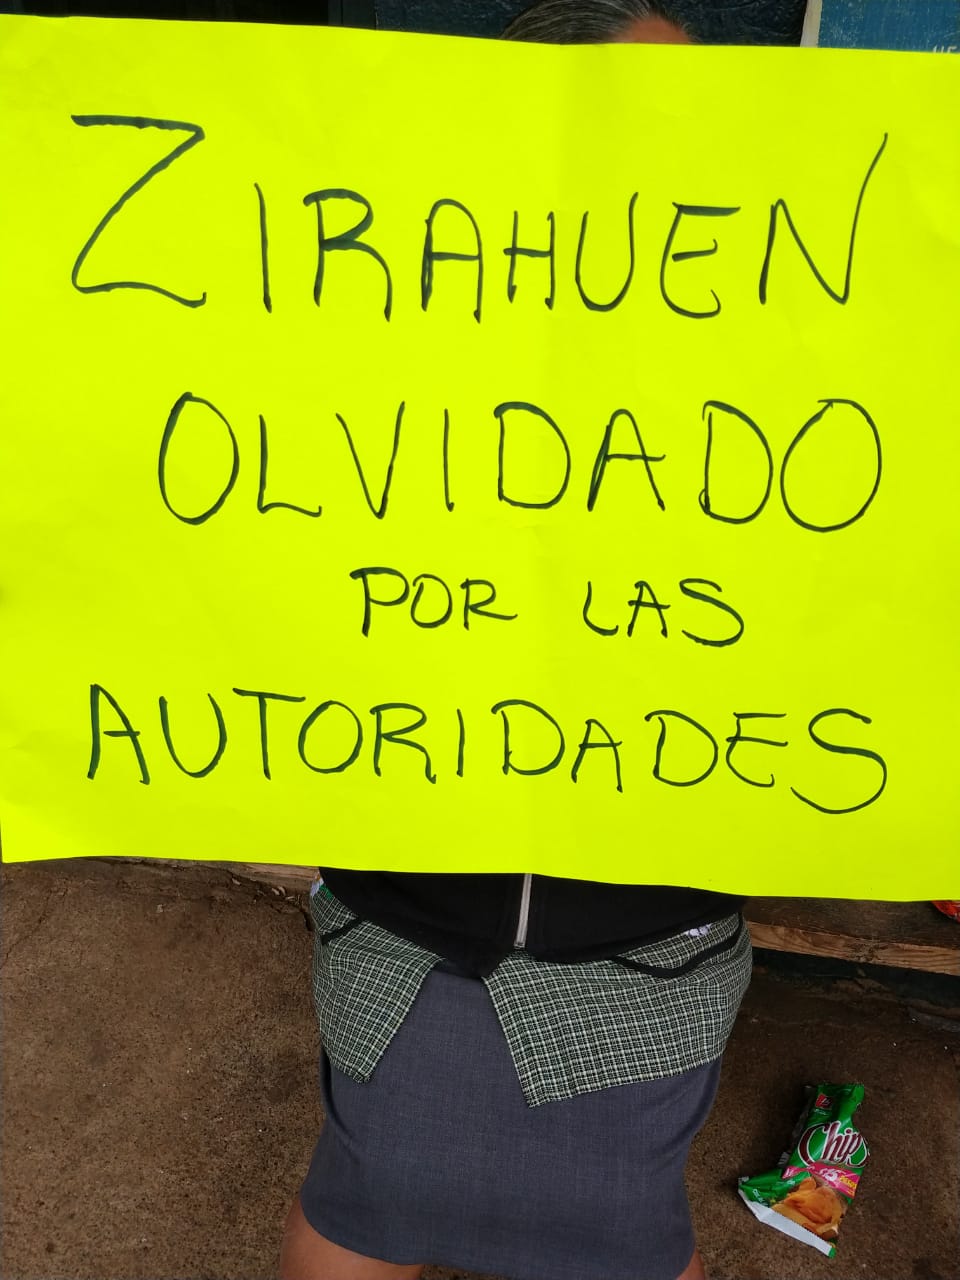 ZIRAHUEN
OLVIDADO
POR LAS
AUTORIDADES
Chips